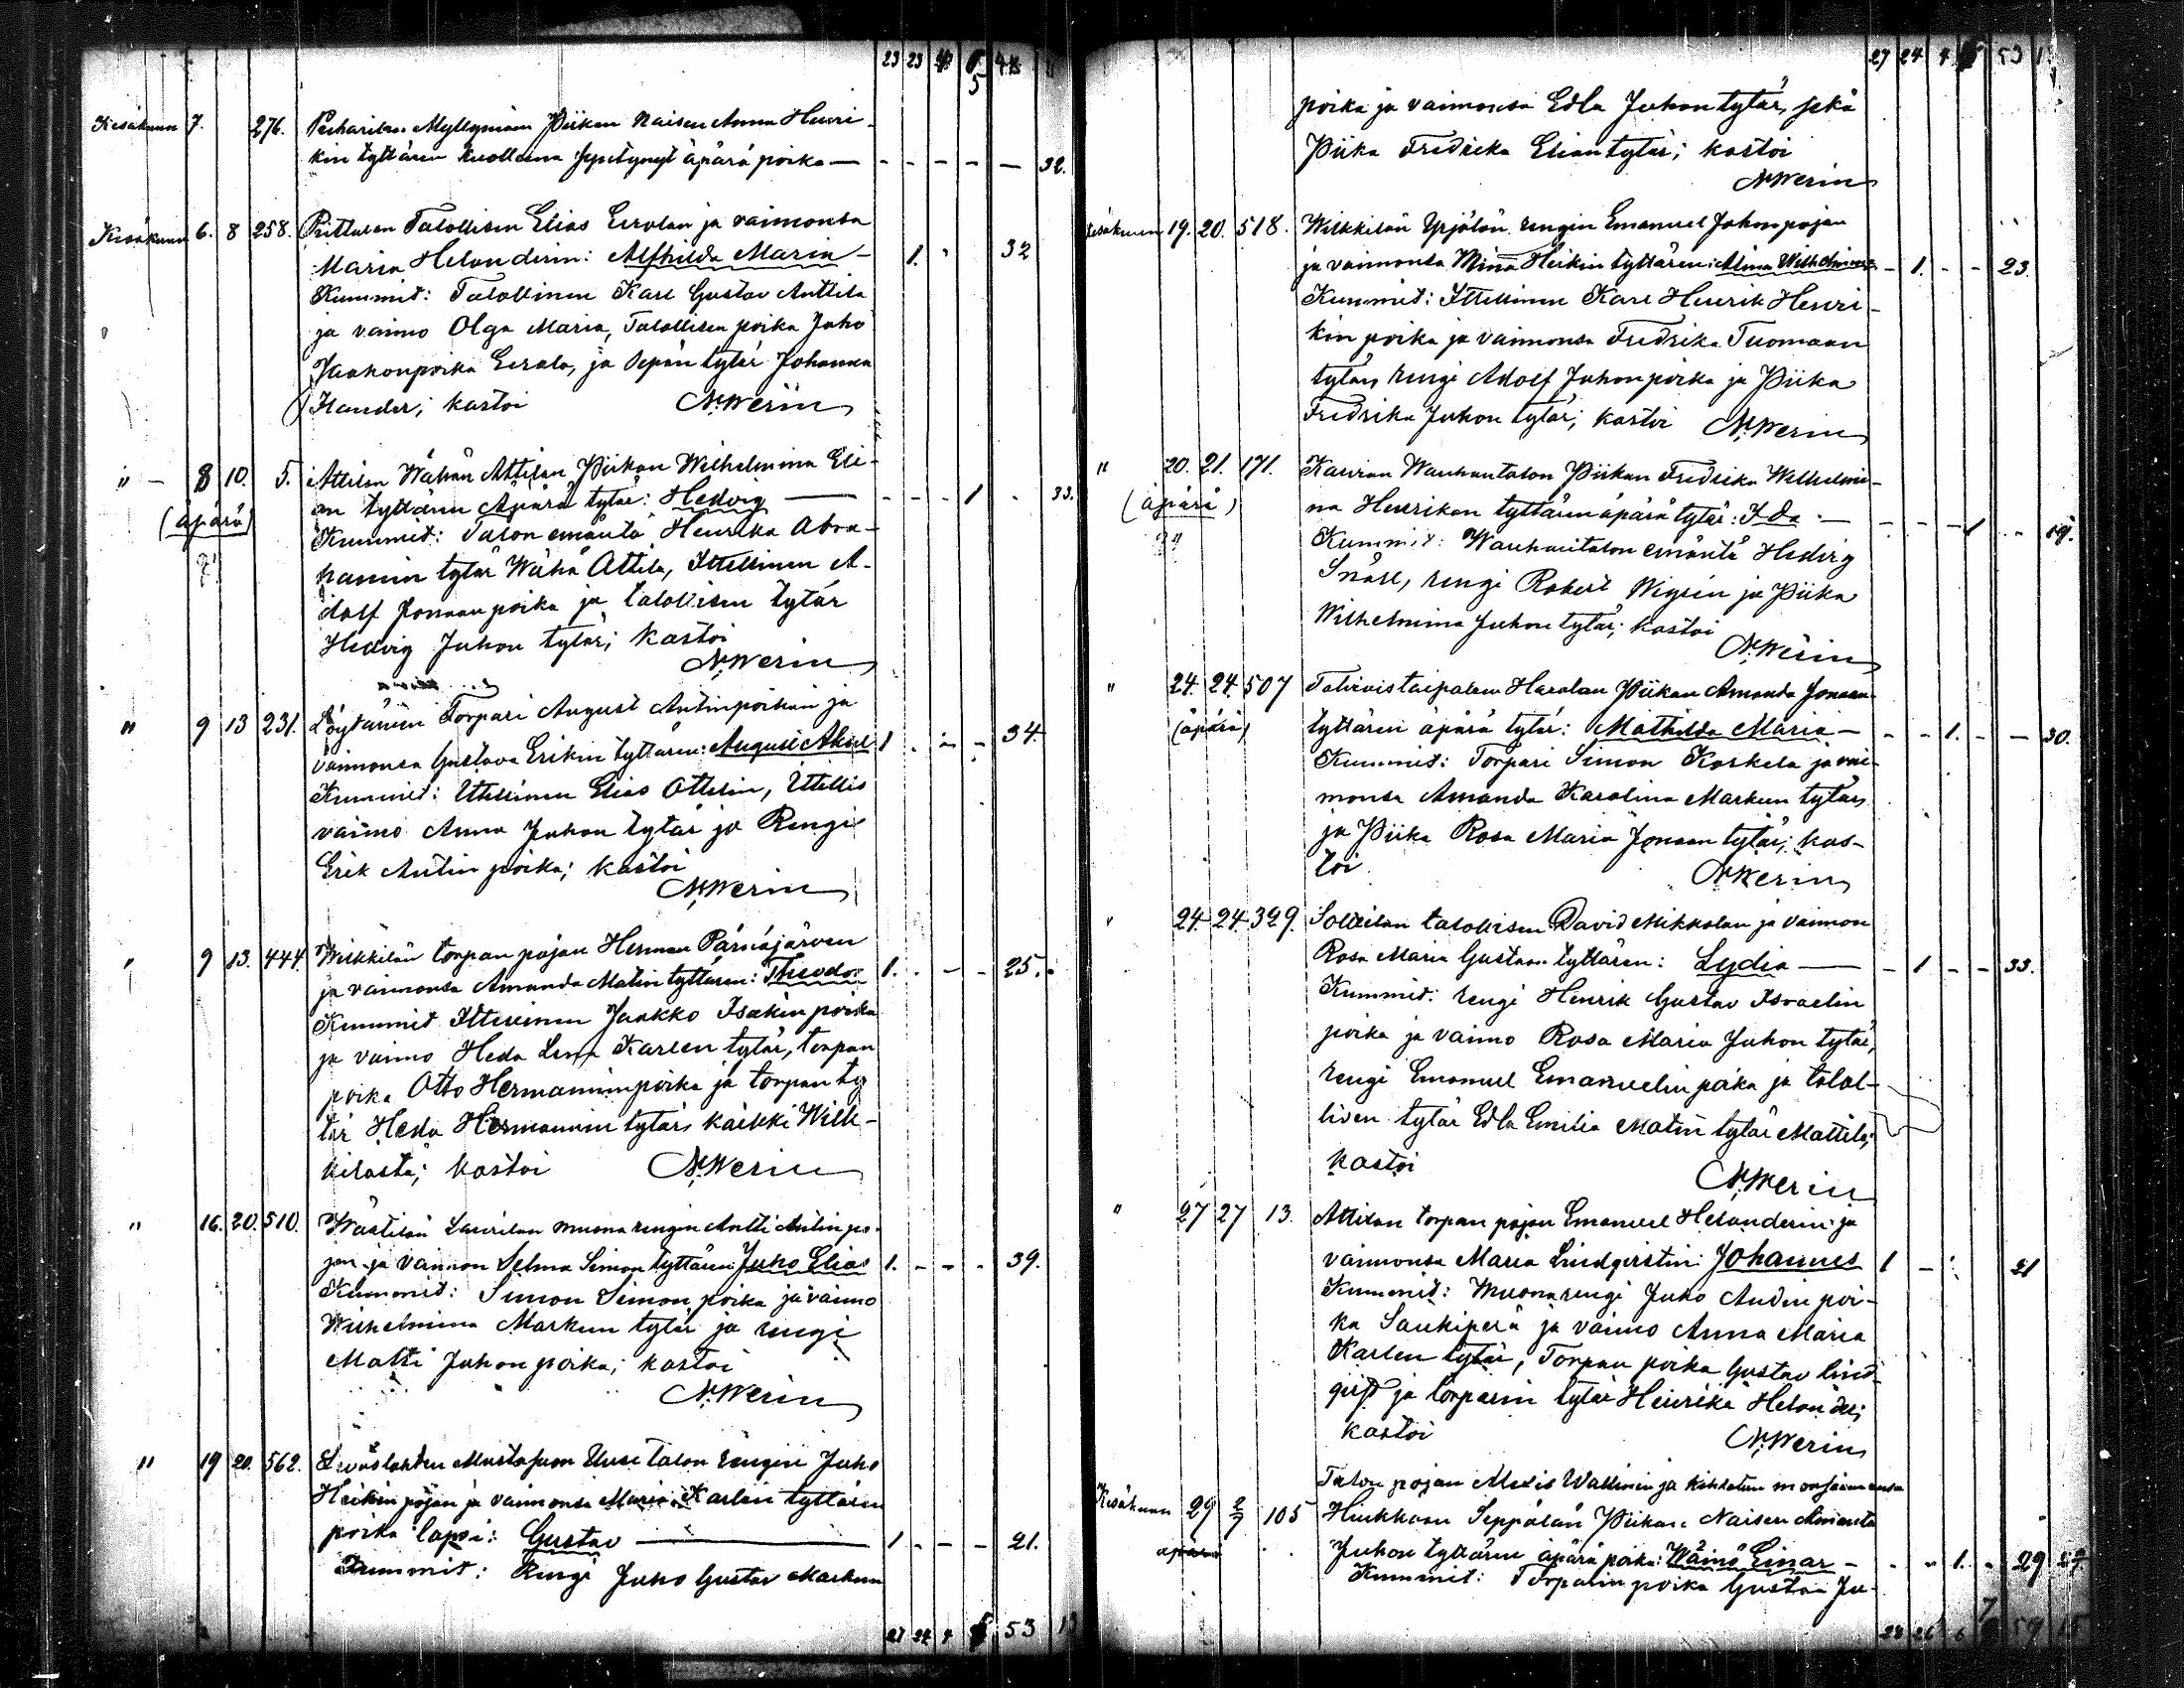 23 23 5
Kesäkuun 7. 276. Myllymäen Piikan Naisen Anna Henri-
kin tyttären kuolleena syntynyt äpärä poika — - - - - — 32.
Kesäkuun 6. 8 258. Talollisen Elias Eerolan ja vaimonsa
Maria Helanderin: Alfhilda Maria - 1. 32
Kummit: Talollinen Karl Gustav Anttila
ja vaimo Olga Maria, Talollisen poika Juho
Jaakonpoika Eerola, ja Sepän tytär Johanna
kastoi N. Werin
" - 8 10. 5. Attilan Wähän Attilan Piikan Wilhelmina Eli-
(äpärä) an tyttären Äpärä tytär: Hedvig — - - - 1 - 33.
Kummit: Talon emäntä Henrika Abra-
hamin tytär Wähä Attila, Ittellinen A-
dolf Jonaan poika ja talollisen tytär
Hedvig Juhon tytär; kastoi
N. Werin
" 9 13 231. Torpari August Antinpoikan ja
vaimonsa Gustava Erikin tyttären: August Aksel 1 . - - 34.
Kummit: Ittellinen Elias Ottelin, Ittellis
vaimo Anna Juhon tytär ja Rengi
Erik Antin poika; kastoi
N. Werin
" 9 13. 444. Wilkkilän torpan pojan Herman Pärnäjärven
ja vaimonsa Amanda Matin tyttären: Theodor 1. . - - 25.
Kummit Ittellinen Jaakko Isakin poika
ja vaimo Heda Lena Karlen tytär, torpan
poika Otto Hermannin poika ja torpan ty
tär Heda Hermannin tytär, kaikki Wilk-
kilästä; kastoi N. Werin
" 16. 20. 510. Laurilan muona rengin Antti Antin po-
jan ja vaimon Selma Simon tyttären Juho Elias 1. - - - 39.
Kummit: Simon Simon poika ja vaimo
Wilhelmina Markun tytär ja rengi
Matti Juhon poika; kastoi
N. Werin
" 19 20. 562. Mustajuon Uusi talon rengin Juho
Heikin pojan ja vaimonsa Maria Karlen tyttären
poika lapsi: Gustav — 1 - - - 21.
Kummit: Rengi Juho Gustav Markun
27 24 4 53 13
27 24 4 53
poika ja vaimonsa Edla Juhon tytär, sekä
Piika Fredrika Elian tytär; kastoi
N. Werin
Kesäkuun 19. 20. 518. Wilkkilän Yrjölän rengin Emanuel Johon pojan
ja vaimonsa Mina Heikin tyttären: Alina Wilhelmina - 1. - - 23.
Kummit: Ittellinen Karl Henrik Henri-
kin poika ja vaimonsa Fredrika Tuomaan
tytär, rengi Adolf Juhon poika ja Piika
Fredrika Juhon tytär; kastoi N. Werin
" 20. 21. 171. Wanhantalon Piikan Fredrika Wilhelmi-
(äpärä) na Henrikan tyttären äpärä tytär: Ida. — - - - 1 - 19.
Kummit: Wanhantalon emäntä Hedvig
Snäll, rengi Robert ja Piika
Wilhelmina Juhon tytär; kastoi
N. Werin
" 24. 24. 507 Haralan Piikan Amanda Jonaan
(äpärä) tyttären äpärä tytär: Mathilda Maria — - - 1. - - 30.
Kummit: Torpari Simon Koskela ja vai-
monsa Amanda Karolina Markun tytär,
ja Piika Rosa Maria Jonaan tytär; kas-
toi N. Werin
" 24. 24. 329. talollisen David Mikkolan ja vaimon
Rosa Maria Gustaan tyttären: Lydia — - 1 - - 33.
Kummit: rengi Henrik Gustav Israelin
poika ja vaimo Rosa Maria Juhon tytär,
rengi Emanuel Emanuelin poika ja talol-
lisen tytär Edla Emilia Matin tytär Mattila;
kastoi
N. Werin
" 27 27 13. Attilan torpan pojan Emanuel Helanderin ja
vaimonsa Maria Lindqvistin: Johannes 1 - 21
Kummit: Muonarengi Juho Andin poi-
ka Saukiperä ja vaimo Anna Maria
Karlen tytär, Torpan poika Gustav Lind-
qvist ja torparin tytär Henrika Helander;
kastoi N. Werin
Talon pojan Alexis Wallinin ja kihlatun morsiamensa
Kesäkuun 29 2/7 105 Seppälän Piikan Naisen Amanta
Juhon tyttären äpärä poika: Wäinö Einar - - - 1. - 29
Kummit: Torparin poika Gustaa Ju-
28 26 6 7 59 15